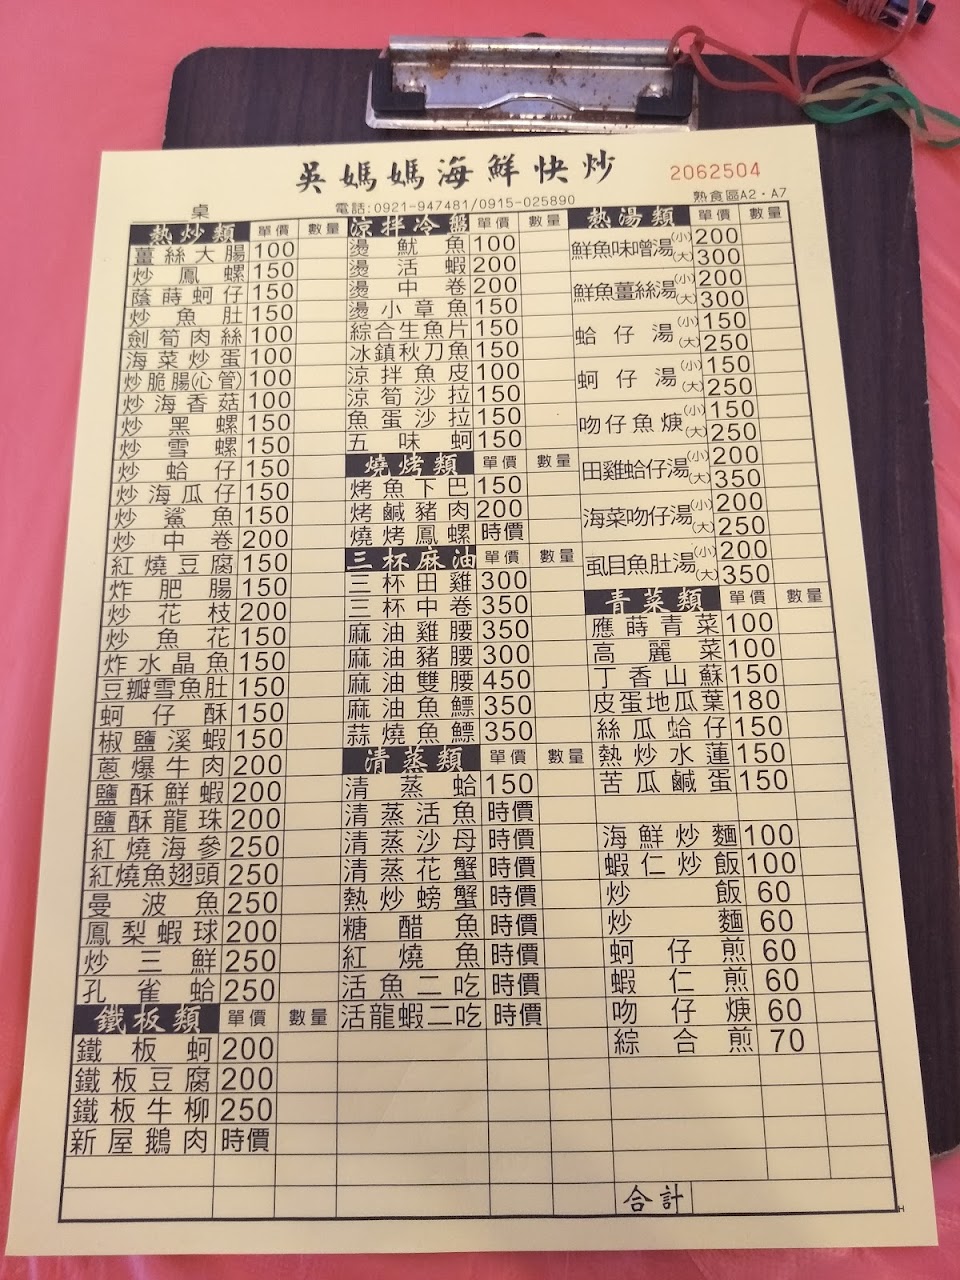 吳媽媽海鮮快炒
2062504
電話:0921-947481/0915-025890
熟食區A2・A7
桌
熱炒類 單價 數量
薑絲大腸 100
炒鳳螺 150
蔭蒔蚵仔 150
炒魚肚 150
劍筍肉絲 100
海菜炒蛋 100
炒脆腸(心管) 100
炒海香菇 100
炒黑螺 150
炒雪螺 150
炒蛤仔 150
炒海瓜仔 150
炒鯊魚 150
炒中卷 200
紅燒豆腐 150
炸肥腸 150
炒花枝 200
炒魚花 150
炸水晶魚 150
豆瓣雪魚肚 150
蚵仔酥 150
椒鹽溪蝦 150
蔥爆牛肉 200
鹽酥鮮蝦 200
鹽酥龍珠 200
紅燒海參 250
紅燒魚翅頭 250
曼波魚 250
鳳梨蝦球 200
炒三鮮 250
孔雀蛤 250
鐵板類 單價 數量
鐵板蚵 200
鐵板豆腐 200
鐵板牛柳 250
新屋鵝肉 時價
涼拌冷盤 單價 數量
燙魷魚 100
燙活蝦 200
燙中卷 200
燙小章魚 150
綜合生魚片 150
冰鎮秋刀魚 150
涼拌魚皮 100
涼筍沙拉 150
魚蛋沙拉 150
五味蚵 150
燒烤類 單價 數量
烤魚下巴 150
烤鹹豬肉 200
燒烤鳳螺 時價
三杯麻油 單價 數量
三杯田雞 300
三杯中卷 350
麻油雞腰 350
麻油豬腰 300
麻油雙腰 450
麻油魚鰾 350
蒜燒魚鰾 350
清蒸類 單價 數量
清蒸蛤 150
清蒸活魚 時價
清蒸沙母 時價
清蒸花蟹 時價
熱炒螃蟹 時價
糖醋魚 時價
紅燒魚 時價
活魚二吃 時價
活龍蝦二吃 時價
熱湯類 單價 數量
鮮魚味噌湯 (小) 200
(大) 300
鮮魚薑絲湯 (小) 200
(大) 300
蛤仔湯 (小) 150
(大) 250
蚵仔湯 (小) 150
(大) 250
吻仔魚焿 (小) 150
(大) 250
田雞蛤仔湯 (小) 200
(大) 350
海菜吻仔湯 (小) 200
(大) 250
虱目魚肚湯 (小) 200
(大) 350
青菜類 單價 數量
應蒔青菜 100
高麗菜 100
丁香山蘇 150
皮蛋地瓜葉 180
絲瓜蛤仔 150
熱炒水蓮 150
苦瓜鹹蛋 150
海鮮炒麵 100
蝦仁炒飯 100
炒飯 60
炒麵 60
蚵仔煎 60
蝦仁煎 60
吻仔焿 60
綜合煎 70
合計
H